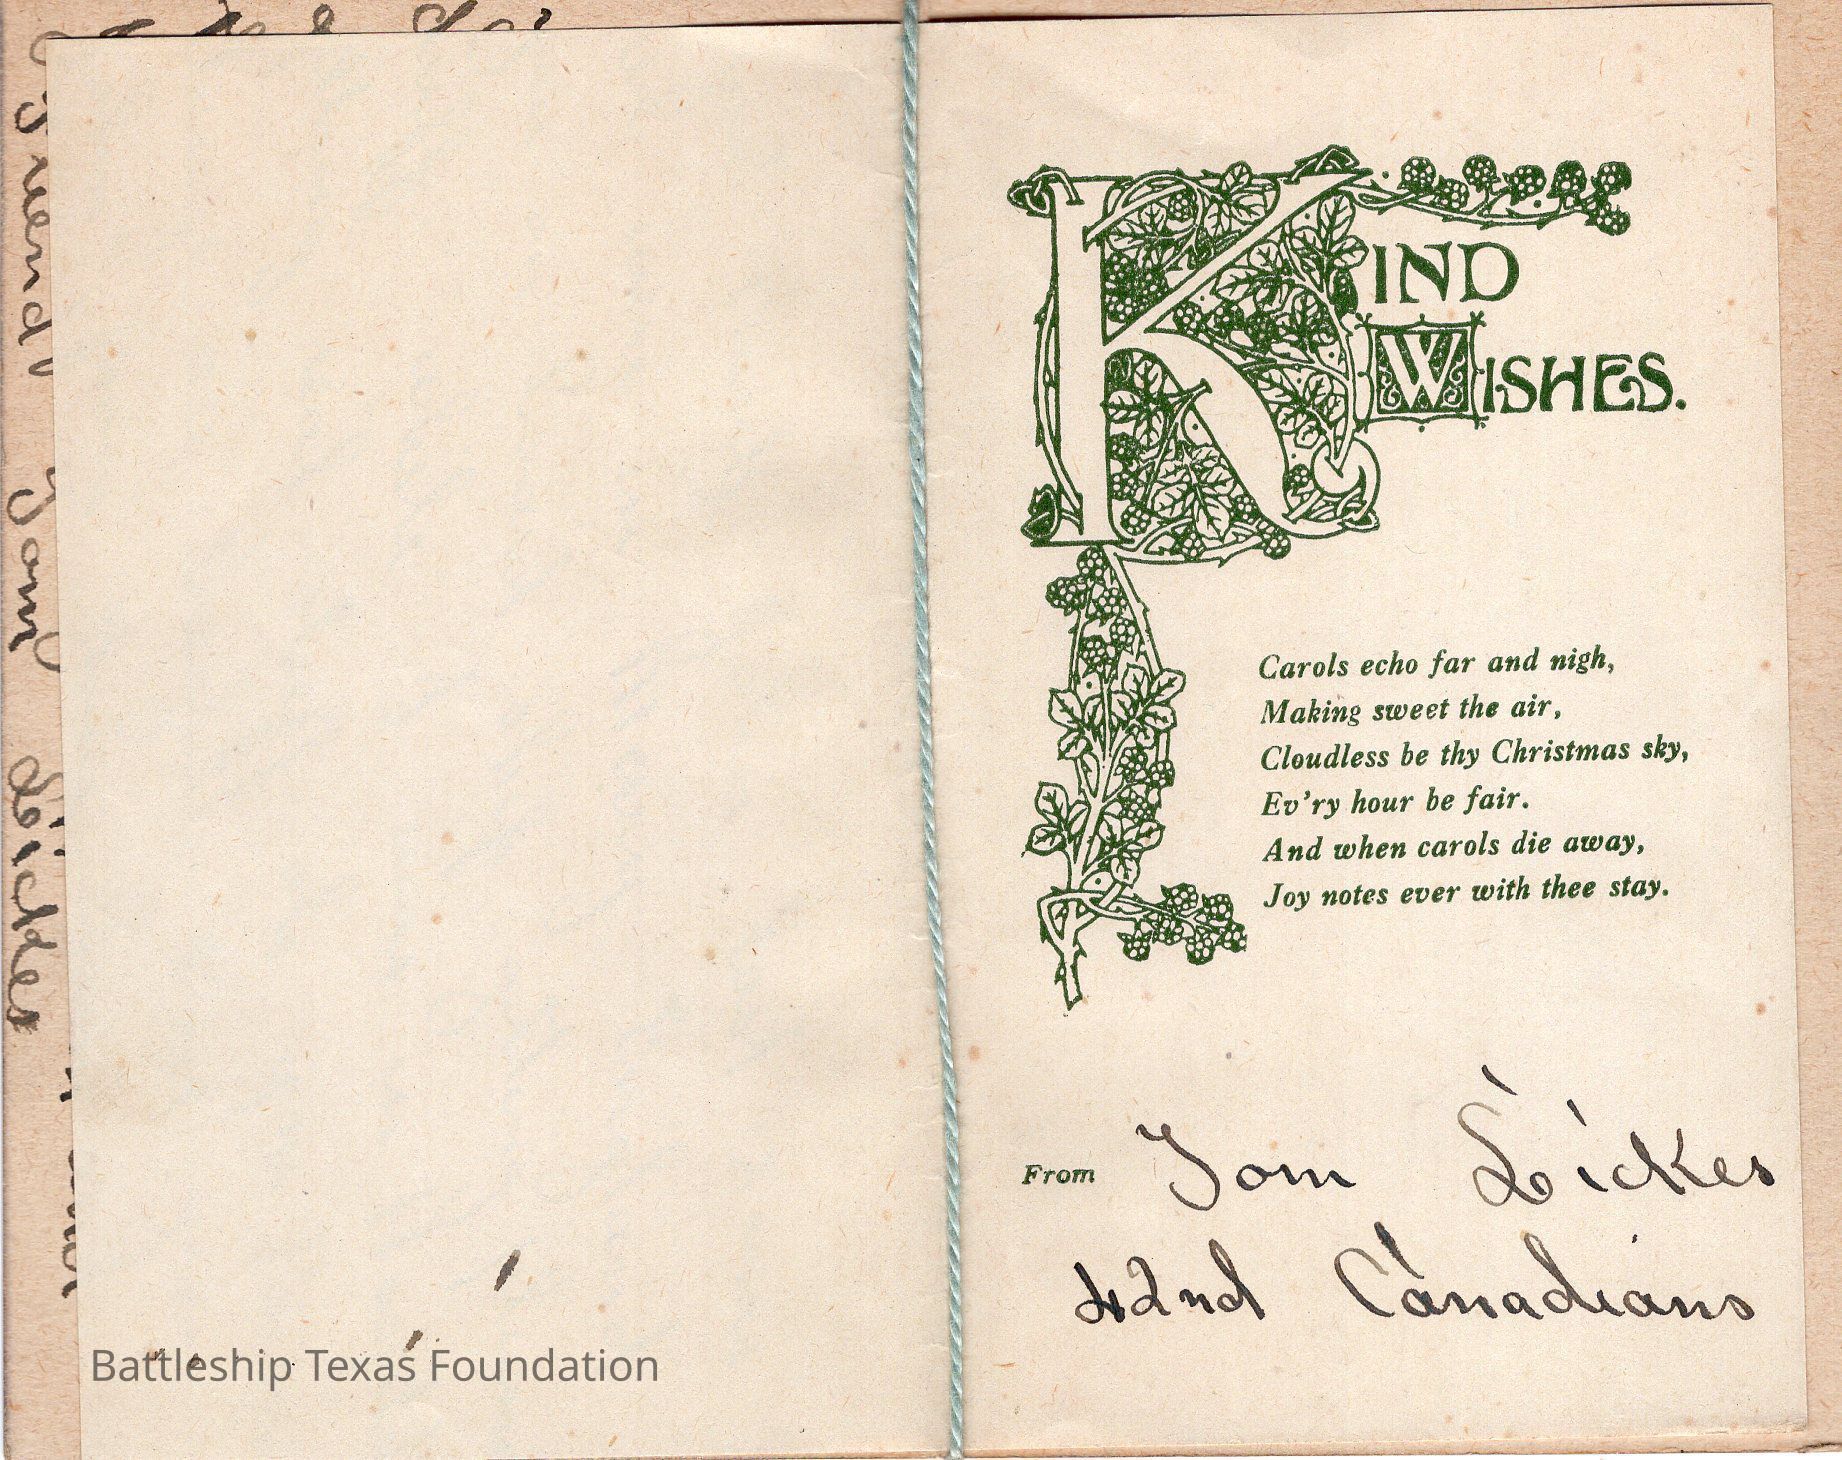 KIND
WISHES.
Carols echo far and nigh,
Making sweet the air,
Cloudless be thy Christmas sky,
Ev'ry hour be fair.
And when carols die away,
Joy notes ever with thee stay.
From Tom Sickes
42nd Canadians
friend Tom Sickes
Battleship Texas Foundation